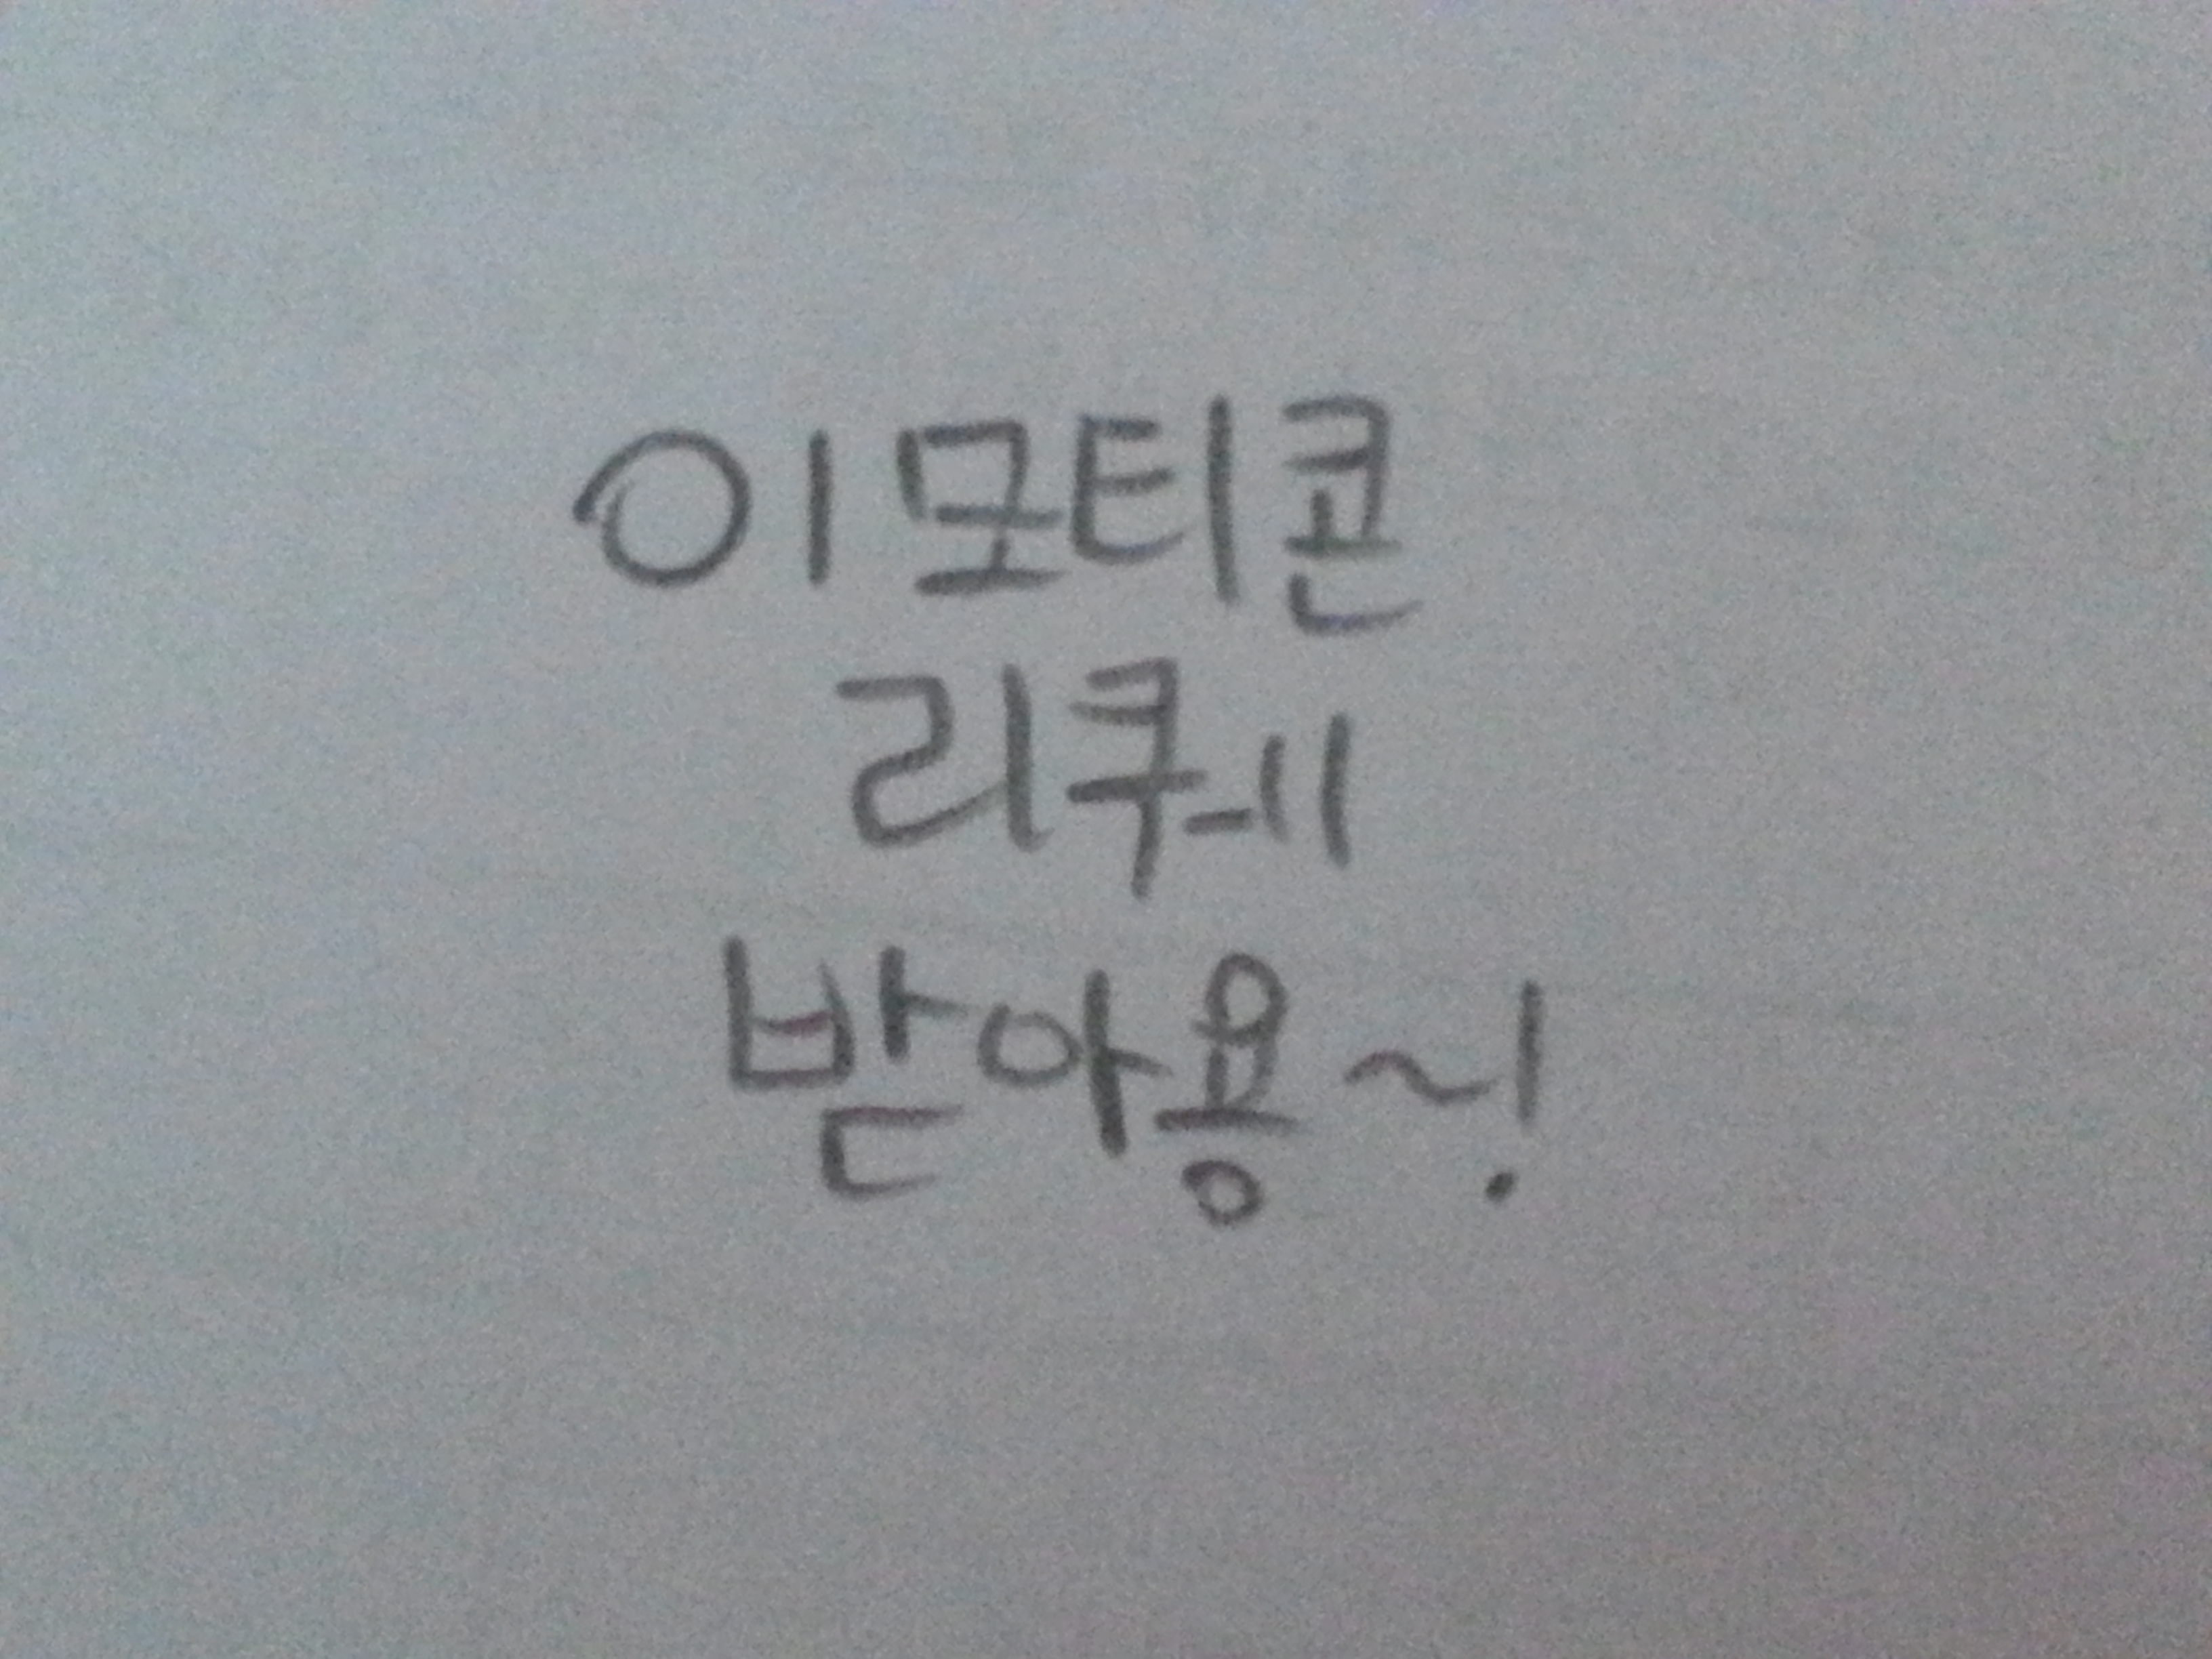 이모티콘
리퀘
받아용~!